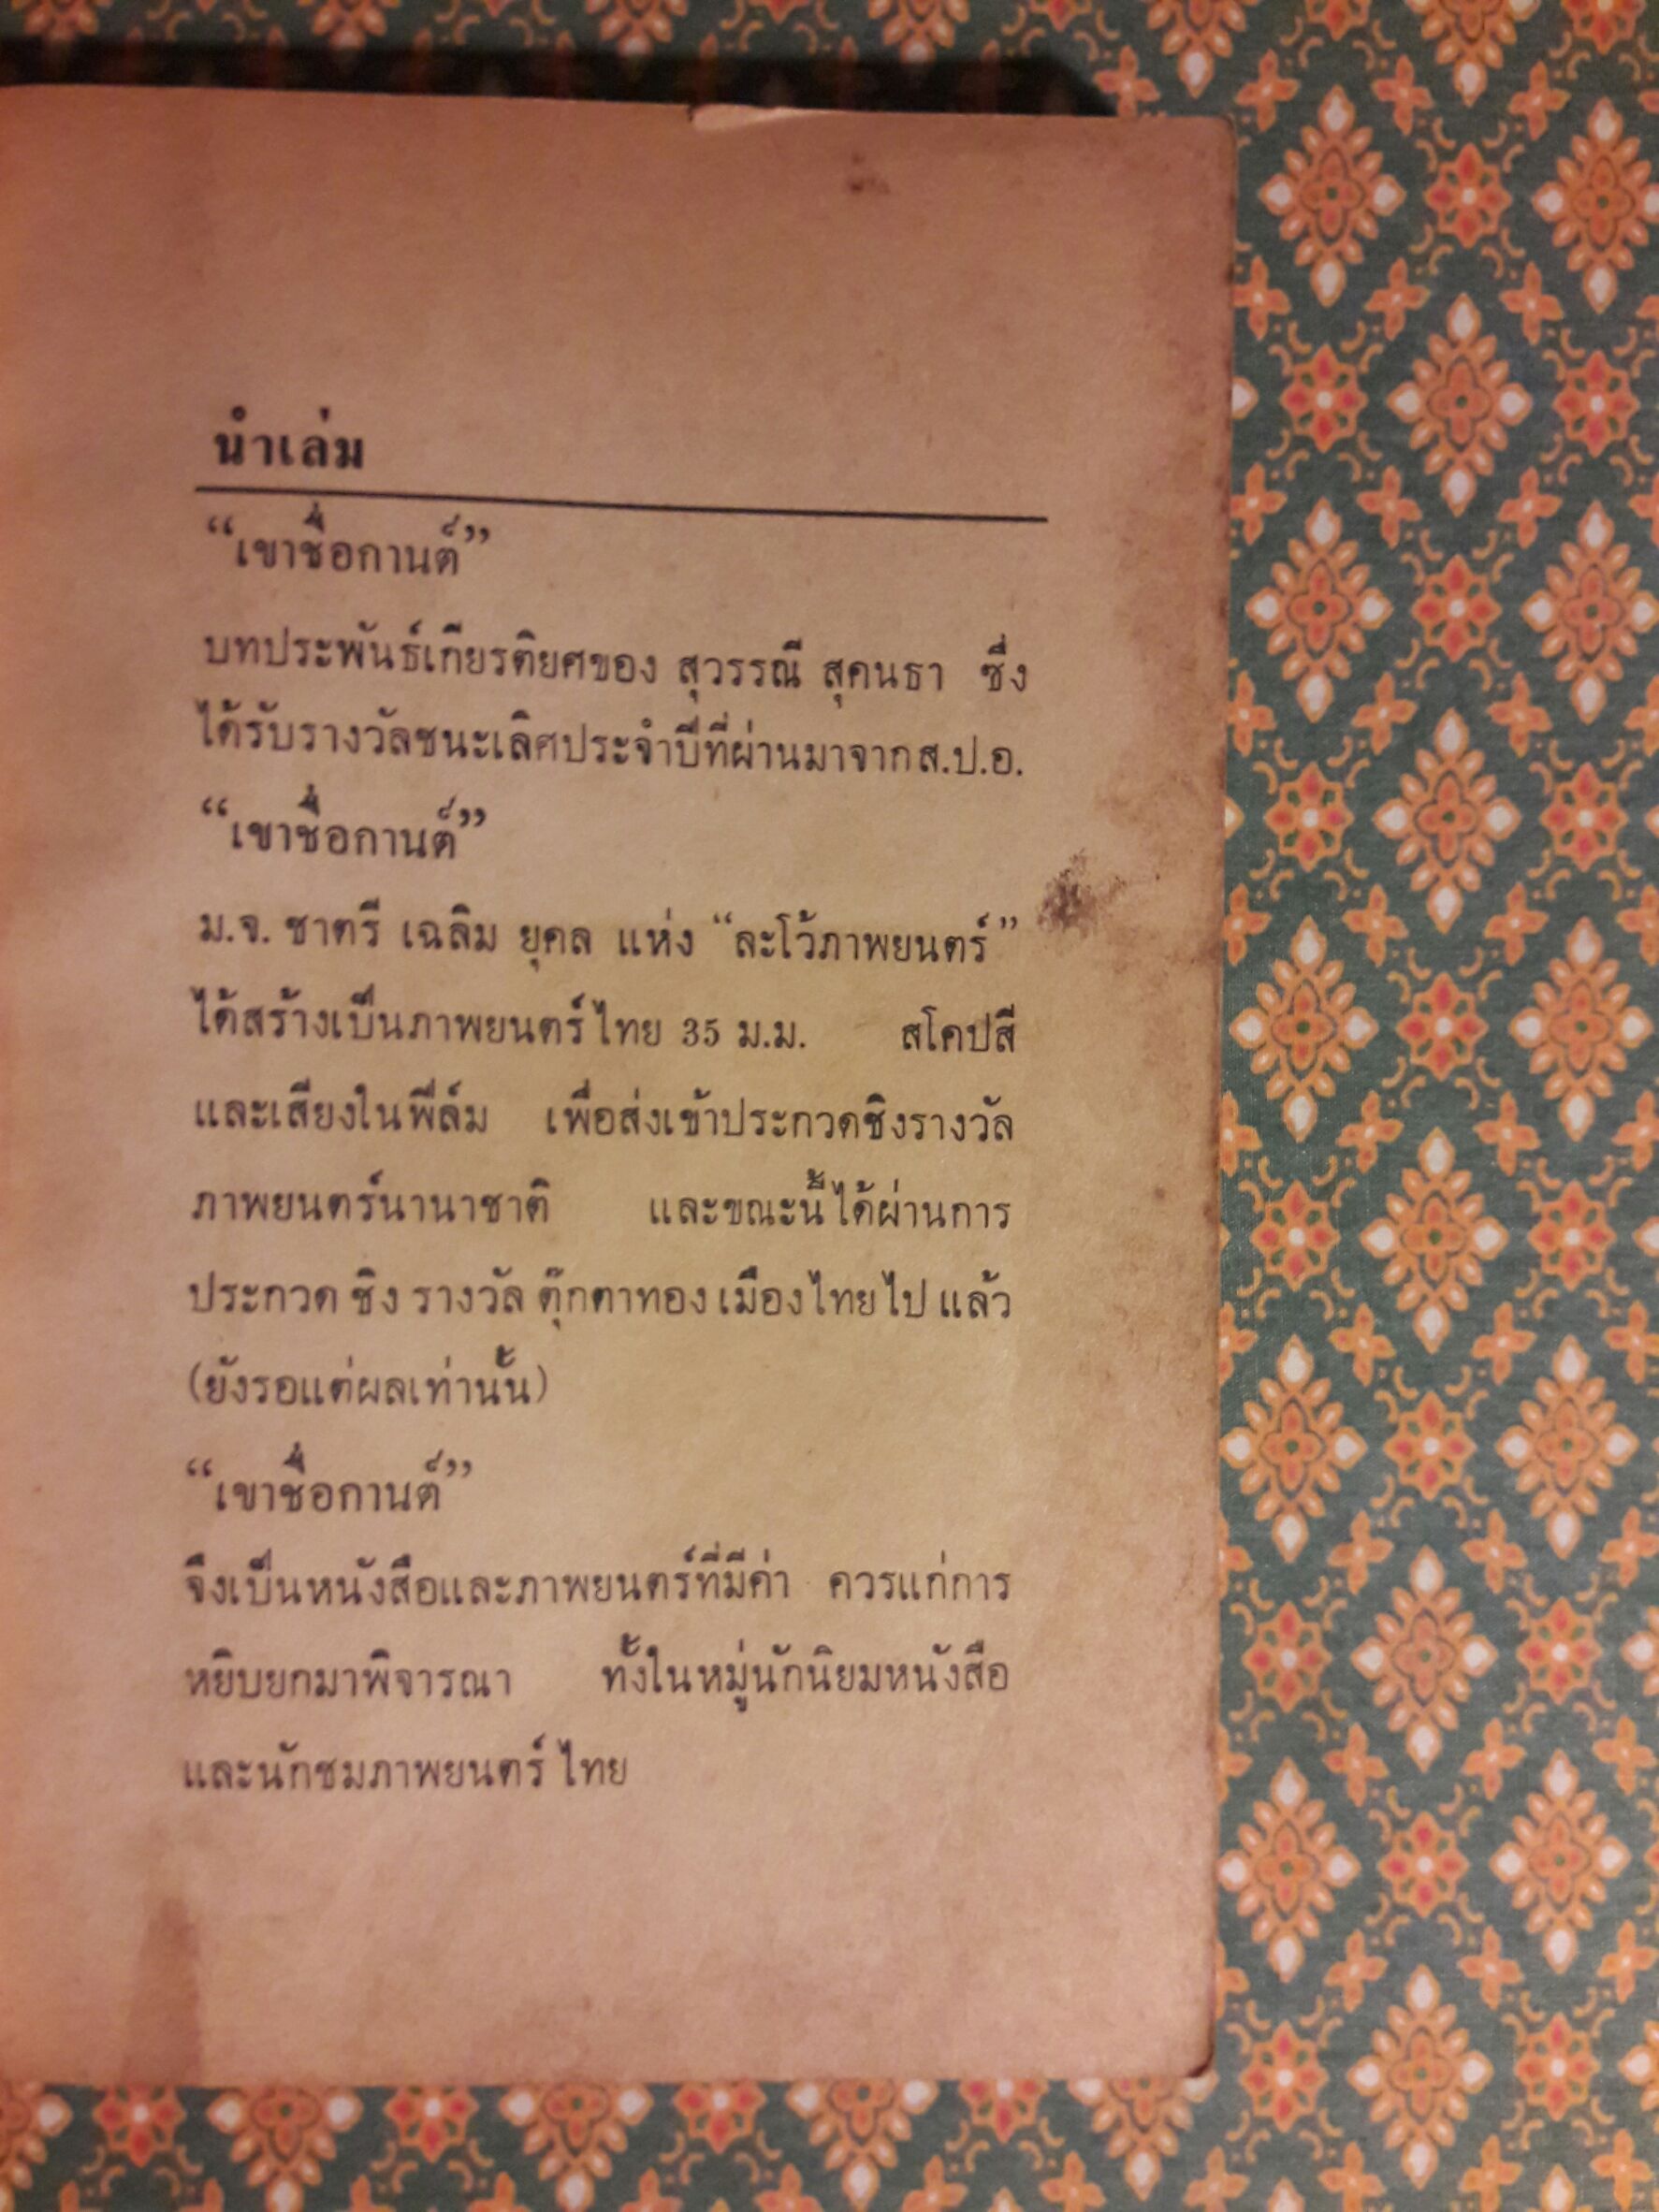 นำเล่ม
“เขาชื่อกานต์”
บทประพันธ์เกียรติยศของ สุวรรณี สุคนธา ซึ่ง
ได้รับรางวัลชนะเลิศประจำปีที่ผ่านมาจากส.ป.อ.
“เขาชื่อกานต์”
ม.จ. ชาตรี เฉลิม ยุคล แห่ง “ละโว้ภาพยนตร์”
ได้สร้างเป็นภาพยนตร์ไทย 35 ม.ม. สโคปสี
และเสียงในฟีล์ม เพื่อส่งเข้าประกวดชิงรางวัล
ภาพยนตร์นานาชาติ และขณะนี้ได้ผ่านการ
ประกวด ชิง รางวัล ตุ๊กตาทอง เมืองไทยไป แล้ว
(ยังรอแต่ผลเท่านั้น)
“เขาชื่อกานต์”
จึงเป็นหนังสือและภาพยนตร์ที่มีค่า ควรแก่การ
หยิบยกมาพิจารณา ทั้งในหมู่นักนิยมหนังสือ
และนักชมภาพยนตร์ ไทย